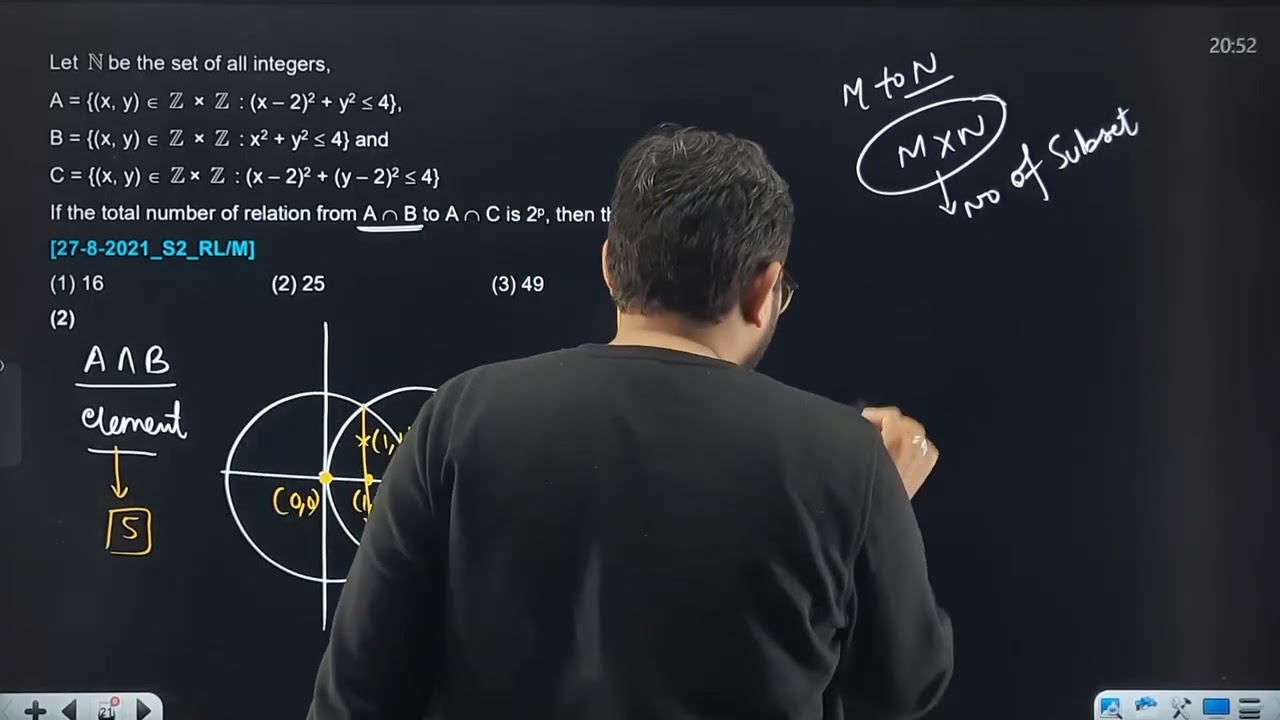 20:52
Let ℕ be the set of all integers,
A = {(x, y) ∈ ℤ × ℤ : (x – 2)² + y² ≤ 4},
B = {(x, y) ∈ ℤ × ℤ : x² + y² ≤ 4} and
C = {(x, y) ∈ ℤ × ℤ : (x – 2)² + (y – 2)² ≤ 4}
If the total number of relation from A ∩ B to A ∩ C is 2ᵖ, then
[27-8-2021_S2_RL/M]
(1) 16 (2) 25 (3) 49
(2)
M to N
M×N
No of Subset
A∩B
element
5
(0,0)
21